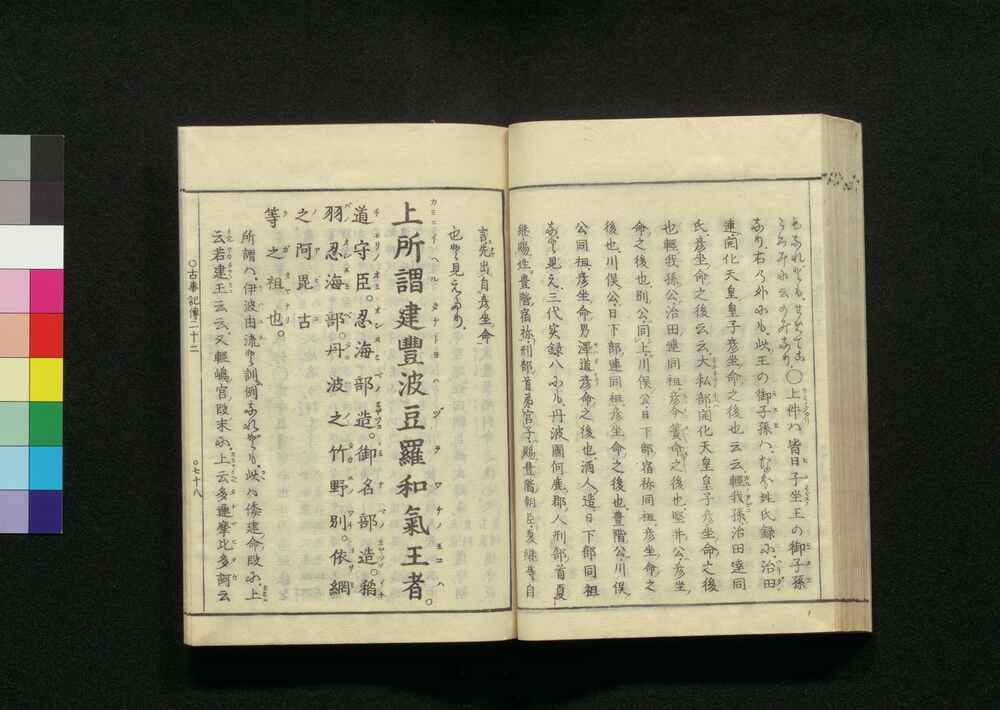 上件ハ皆日子坐王の御子孫
なり、右乃外にも、此王の御子孫ハ、なほ姓氏録に、治田
連、開化天皇皇子彦坐命之後也云云、輕我孫、治田連同
氏、彦坐命之後云云、大私部、開化天皇皇子彦坐命之後
也輕我孫公、治田連同祖、彦今簀命之後也、堅井公、彦坐
命之後也、別公、同上、川俣公、日下部宿祢同祖、彦坐命之
後也、川俣公、日下部連同祖、彦坐命之後也、豊階公、川俣
公同祖、彦坐命男澤道彦命之後也、酒人造、日下部同祖
など見え、三代実録八に、丹波國何鹿郡人刑部首夏
継賜姓豊階宿祢、刑部首弟宮子賜豊階朝臣、夏継等自
言先出自彦坐命
也など見えたり、
上所謂建豐波豆羅和氣王者。
道守臣。忍海部造。御名部造。稻
羽忍海部。丹波之竹野別。依網
之阿毘古
等之祖也。
所謂ハ、伊波由流と訓例なれども、此ハ倭建命段に、上
云若建王云云、又輕嶋宮段末に、上云多遲摩比多訶云
○古事記傳二十二
○七十八